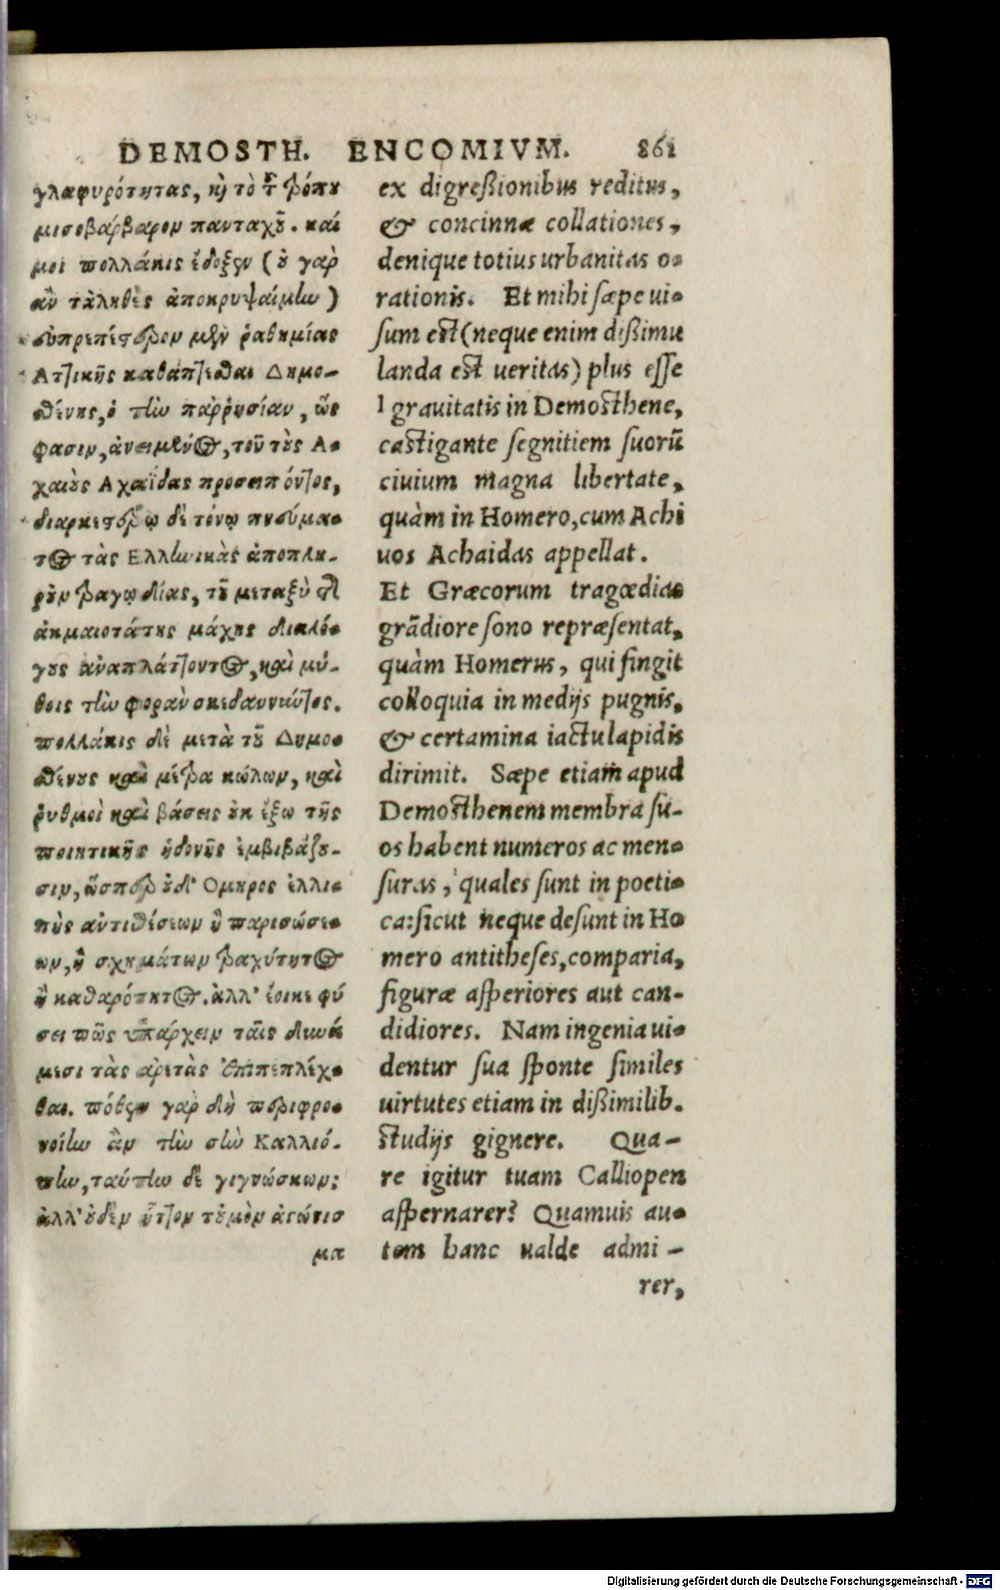 DEMOSTH. ENCOMIVM. 861
γλαφυρότητας, κỳ τὸ τ τρόπου
μισοβάρβαρον πανταχοῦ. καί
μοι πολλάκις ἔδοξεν (οὐ γὰρ
ἂν τἀληθὲς ἀποκρυψαίμην)
εὐπρεπέστερον μὲν ῥαθυμίας
Ατλικῆς καθάπλεσθαι Δημο-
σθένης, ὁ τὴν παῤῥησίαν, ὥς
φασιν, ἀνειμένος, τοῦ τοὺς Α-
χαιοὺς Αχαΐδας προσειπόντος,
διαρκεστέρῳ δὲ τόνῳ πνεύμα-
τος τὰς Ελλωικὰς ἀποπλη-
ροῦν τραγῳδίας, τοῦ μεταξὺ τῆ
ἀκμαιοτάτης μάχης διαλό-
γους ἀναπλάττοντος, καὶ μύ-
θοις τὴν φορὰν σκεδαννύντος.
πολλάκις δὲ μετὰ τοῦ Δημο-
σθένους καὶ μέτρα κώλων, καὶ
ῥυθμοὶ καὶ βάσεις οὐκ ἔξω τῆς
ποιητικῆς ἡδονῆς ἐμβιβάζου-
σιν, ὥσπερ οὐδ' Ομηρος ἐλλι-
πὴς ἀντιθέσεων ἢ παρισώσε-
ων, ἢ σχημάτων τραχύτητος
ἢ καθαρότητος. ἀλλ' ἔοικε φύ
σει πῶς ὑπάρχειν ταῖς δυνά
μεσι τὰς ἀρετὰς ἐπιπεπλέχ-
θαι. πόθεν γὰρ δὴ περιφρο-
νοίην ἂν τὴν σὴν Καλλιό-
πην, ταύτην δὲ γιγνώσκων;
ἀλλ' οὐδὲν ἧττον τοὐμὸν ἀγώνισ
μα
ex digreßionibus reditus,
& concinnæ collationes,
denique totius urbanitas o-
rationis. Et mihi sæpe ui-
sum est (neque enim dißimu
landa est ueritas) plus esse
grauitatis in Demosthene,
castigante segnitiem suorū
ciuium magna libertate,
quàm in Homero, cum Achi
uos Achaidas appellat.
Et Græcorum tragœdias
grādiore sono repræsentat,
quàm Homerus, qui fingit
colloquia in medijs pugnis,
& certamina iactu lapidis
dirimit. Sæpe etiam apud
Demosthenem membra su-
os habent numeros ac men-
suras, quales sunt in poeti-
ca: sicut neque desunt in Ho
mero antitheses, comparia,
figuræ asperiores aut can-
didiores. Nam ingenia ui-
dentur sua sponte similes
uirtutes etiam in dißimilib.
studijs gignere. Qua-
re igitur tuam Calliopen
aspernarer? Quamuis au-
tem hanc ualde admi-
rer,
Digitalisierung gefördert durch die Deutsche Forschungsgemeinschaft - DFG